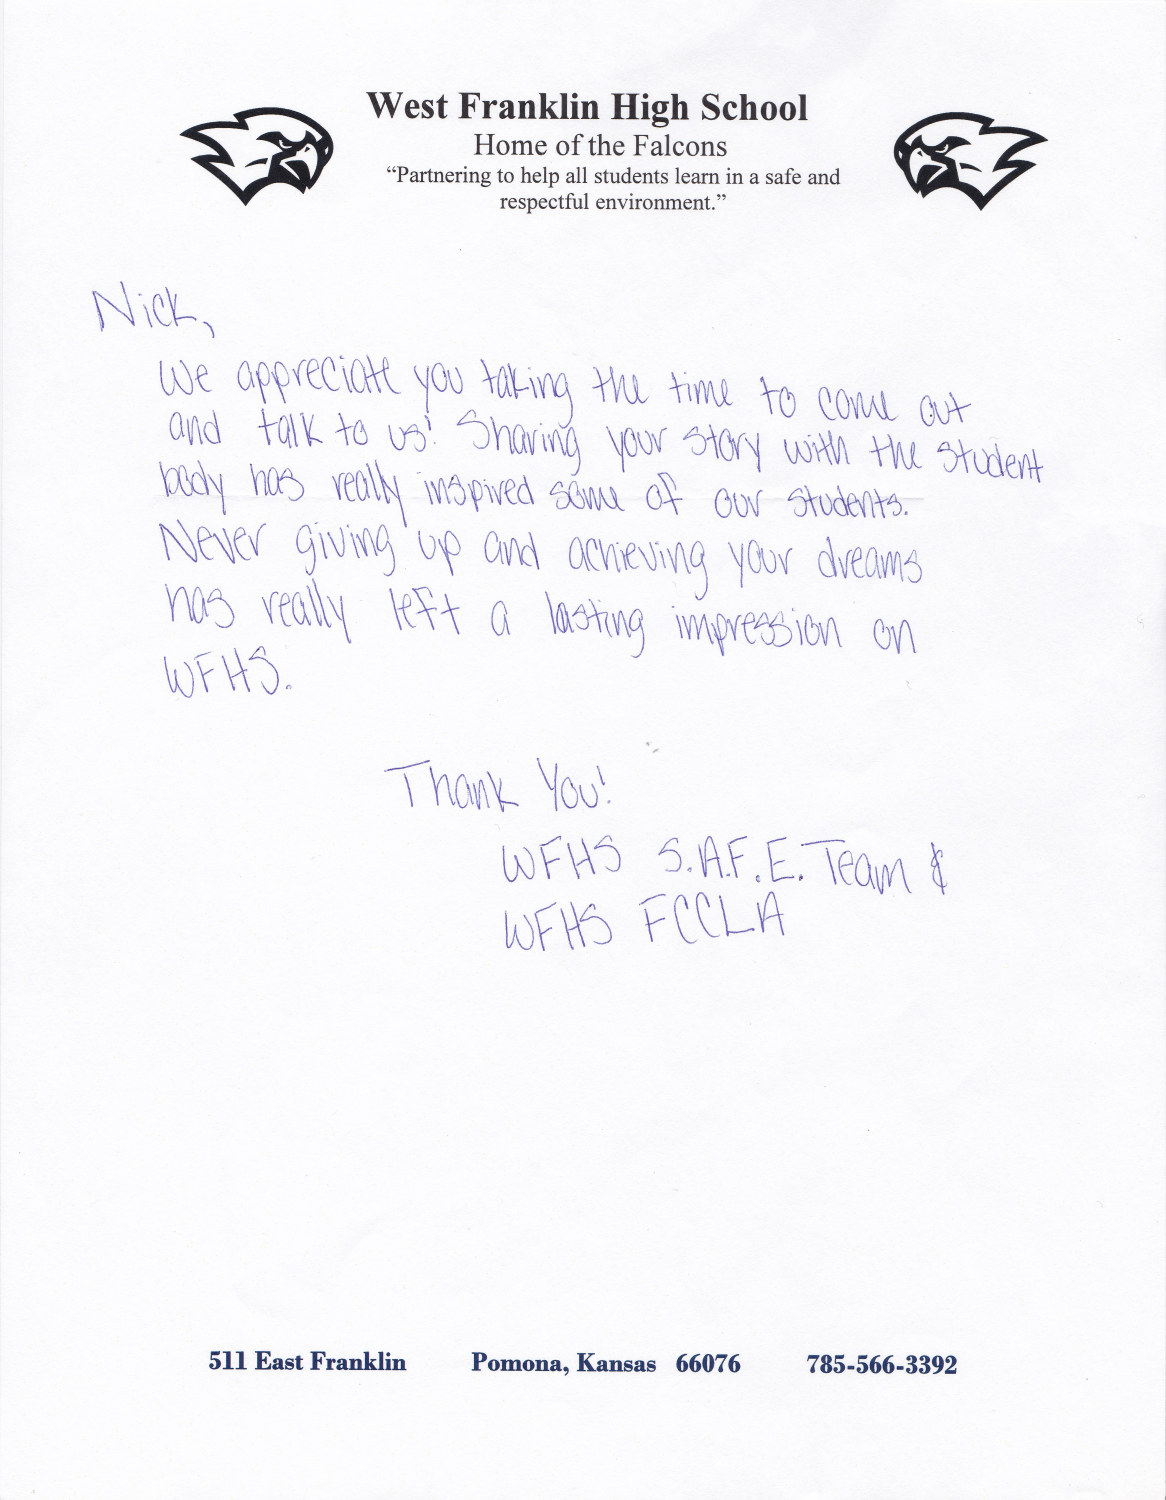 West Franklin High School
Home of the Falcons
“Partnering to help all students learn in a safe and
respectful environment.”
Nick,
We appreciate you taking the time to come out
and talk to us! Sharing your story with the student
body has really inspired some of our students.
Never giving up and achieving your dreams
has really left a lasting impression on
WFHS.
Thank You!
WFHS S.A.F.E. Team &
WFHS FCCLA
511 East Franklin Pomona, Kansas 66076 785-566-3392